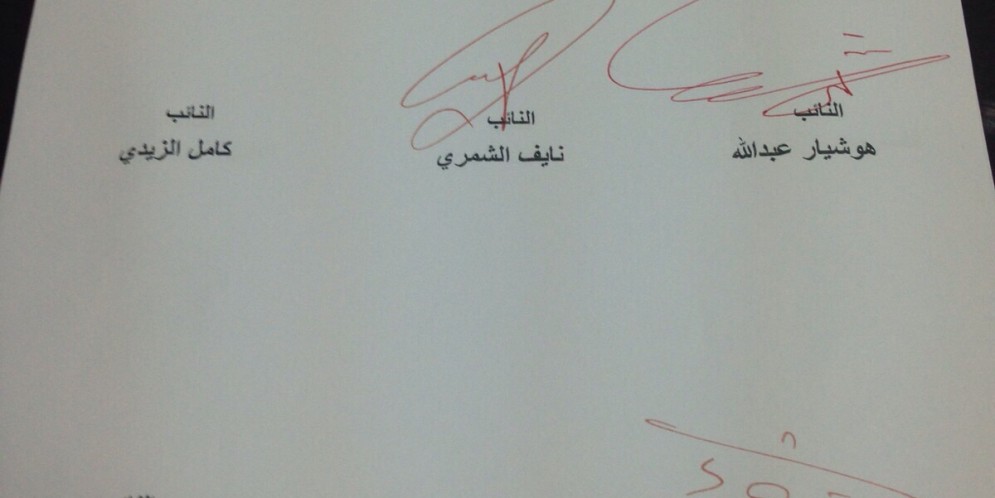 النائب النائب النائب
هوشيار عبدالله نايف الشمري كامل الزيدي